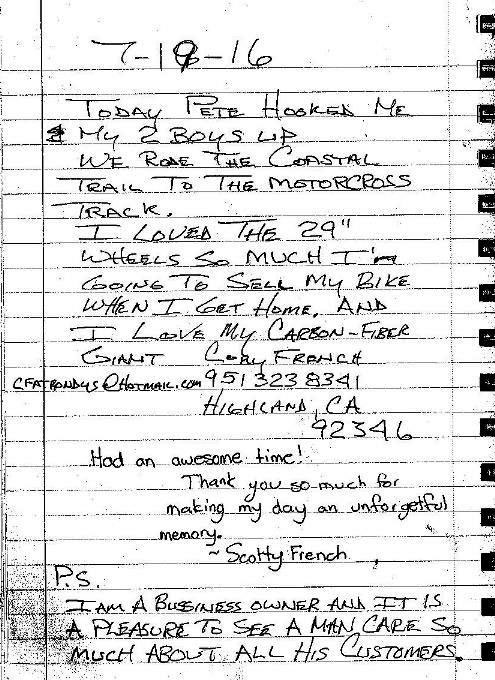 7-19-16
TODAY PETE HOOKED ME
& MY 2 BOYS UP
WE RODE THE COASTAL
TRAIL TO THE MOTORCROSS
TRACK.
I LOVED THE 29"
WHEELS SO MUCH I'm
GOING TO SELL MY BIKE
WHEN I GET HOME. AND
I LOVE MY CARBON-FIBER
GIANT CORY FRENCH
CFATBONDYS@HOTMAIL.com 951 323 8341
HIGHLAND, CA
92346
Had an awesome time!
Thank you so much for
making my day an unforgetful
memory.
~ Scotty French
P.S.
I AM A BUSSINESS OWNER AND IT IS
A PLEASURE TO SEE A MAN CARE SO
MUCH ABOUT ALL HIS CUSTOMERS.